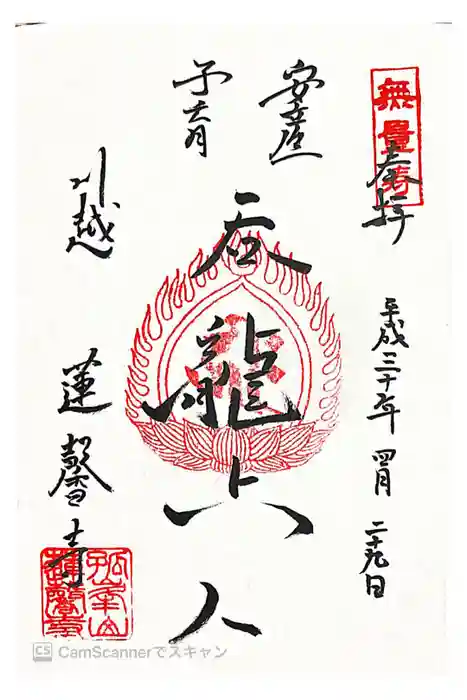 無量寿
奉拝
平成三十年 四月 二十九日
安産
子育
呑龍上人
川越
蓮馨寺
孤峯山
蓮馨寺
CS CamScannerでスキャン